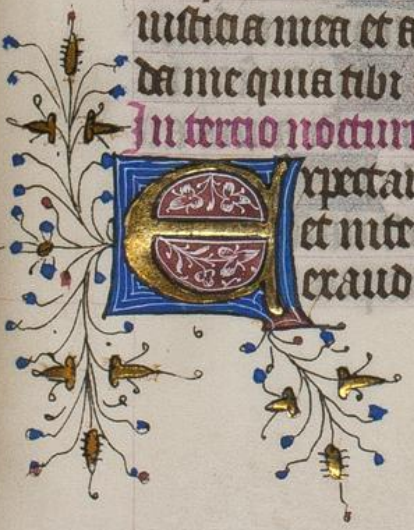 iusticia mea et a
da me quia tibi
In tercio noctur
Expectan
et inte
exaud